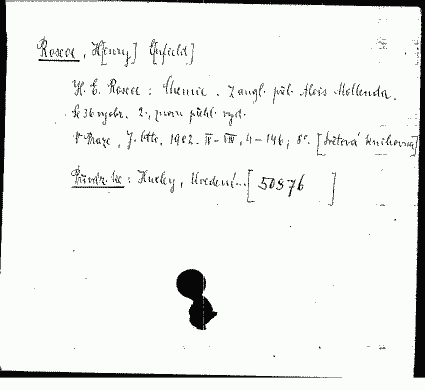 Roscoe, H[enry] E[nfield]
H. E. Roscoe: Chemie. Z angl. přel. Alois Mollenda.
Se 36 vyobr. 2., znovu přehl. vyd.
V Praze, J. Otto, 1902. IV-VIII, 4-146; 8°. [Světová knihovna]
Přívaz. ke: Huxley, Uvedení... [50876]